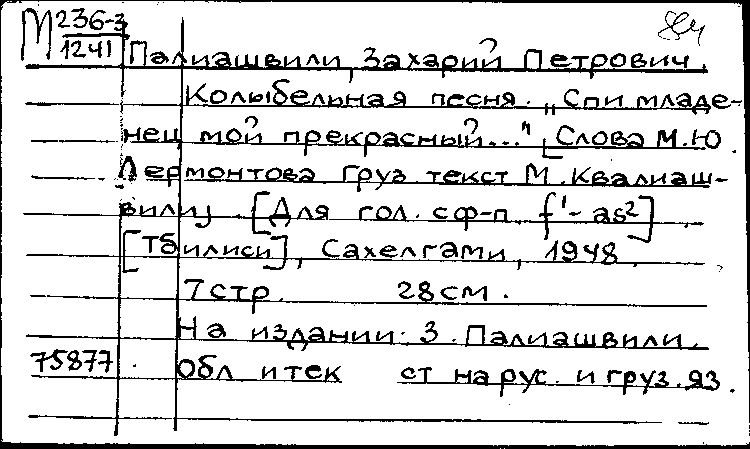 М 236-3
1241
Палиашвили, Захарий Петрович.
Колыбельная песня. „Спи младе-
нец мой прекрасный..." [Слова М.Ю.
Лермонтова. Груз. текст М. Квалиаш-
вили]. [Для гол. с ф-п. f¹- as²]
[Тбилиси], Сахелгами, 1948.
7 стр. 28 см.
На издании: З. Палиашвили.
75877 Обл и тек ст на рус. и груз. яз.